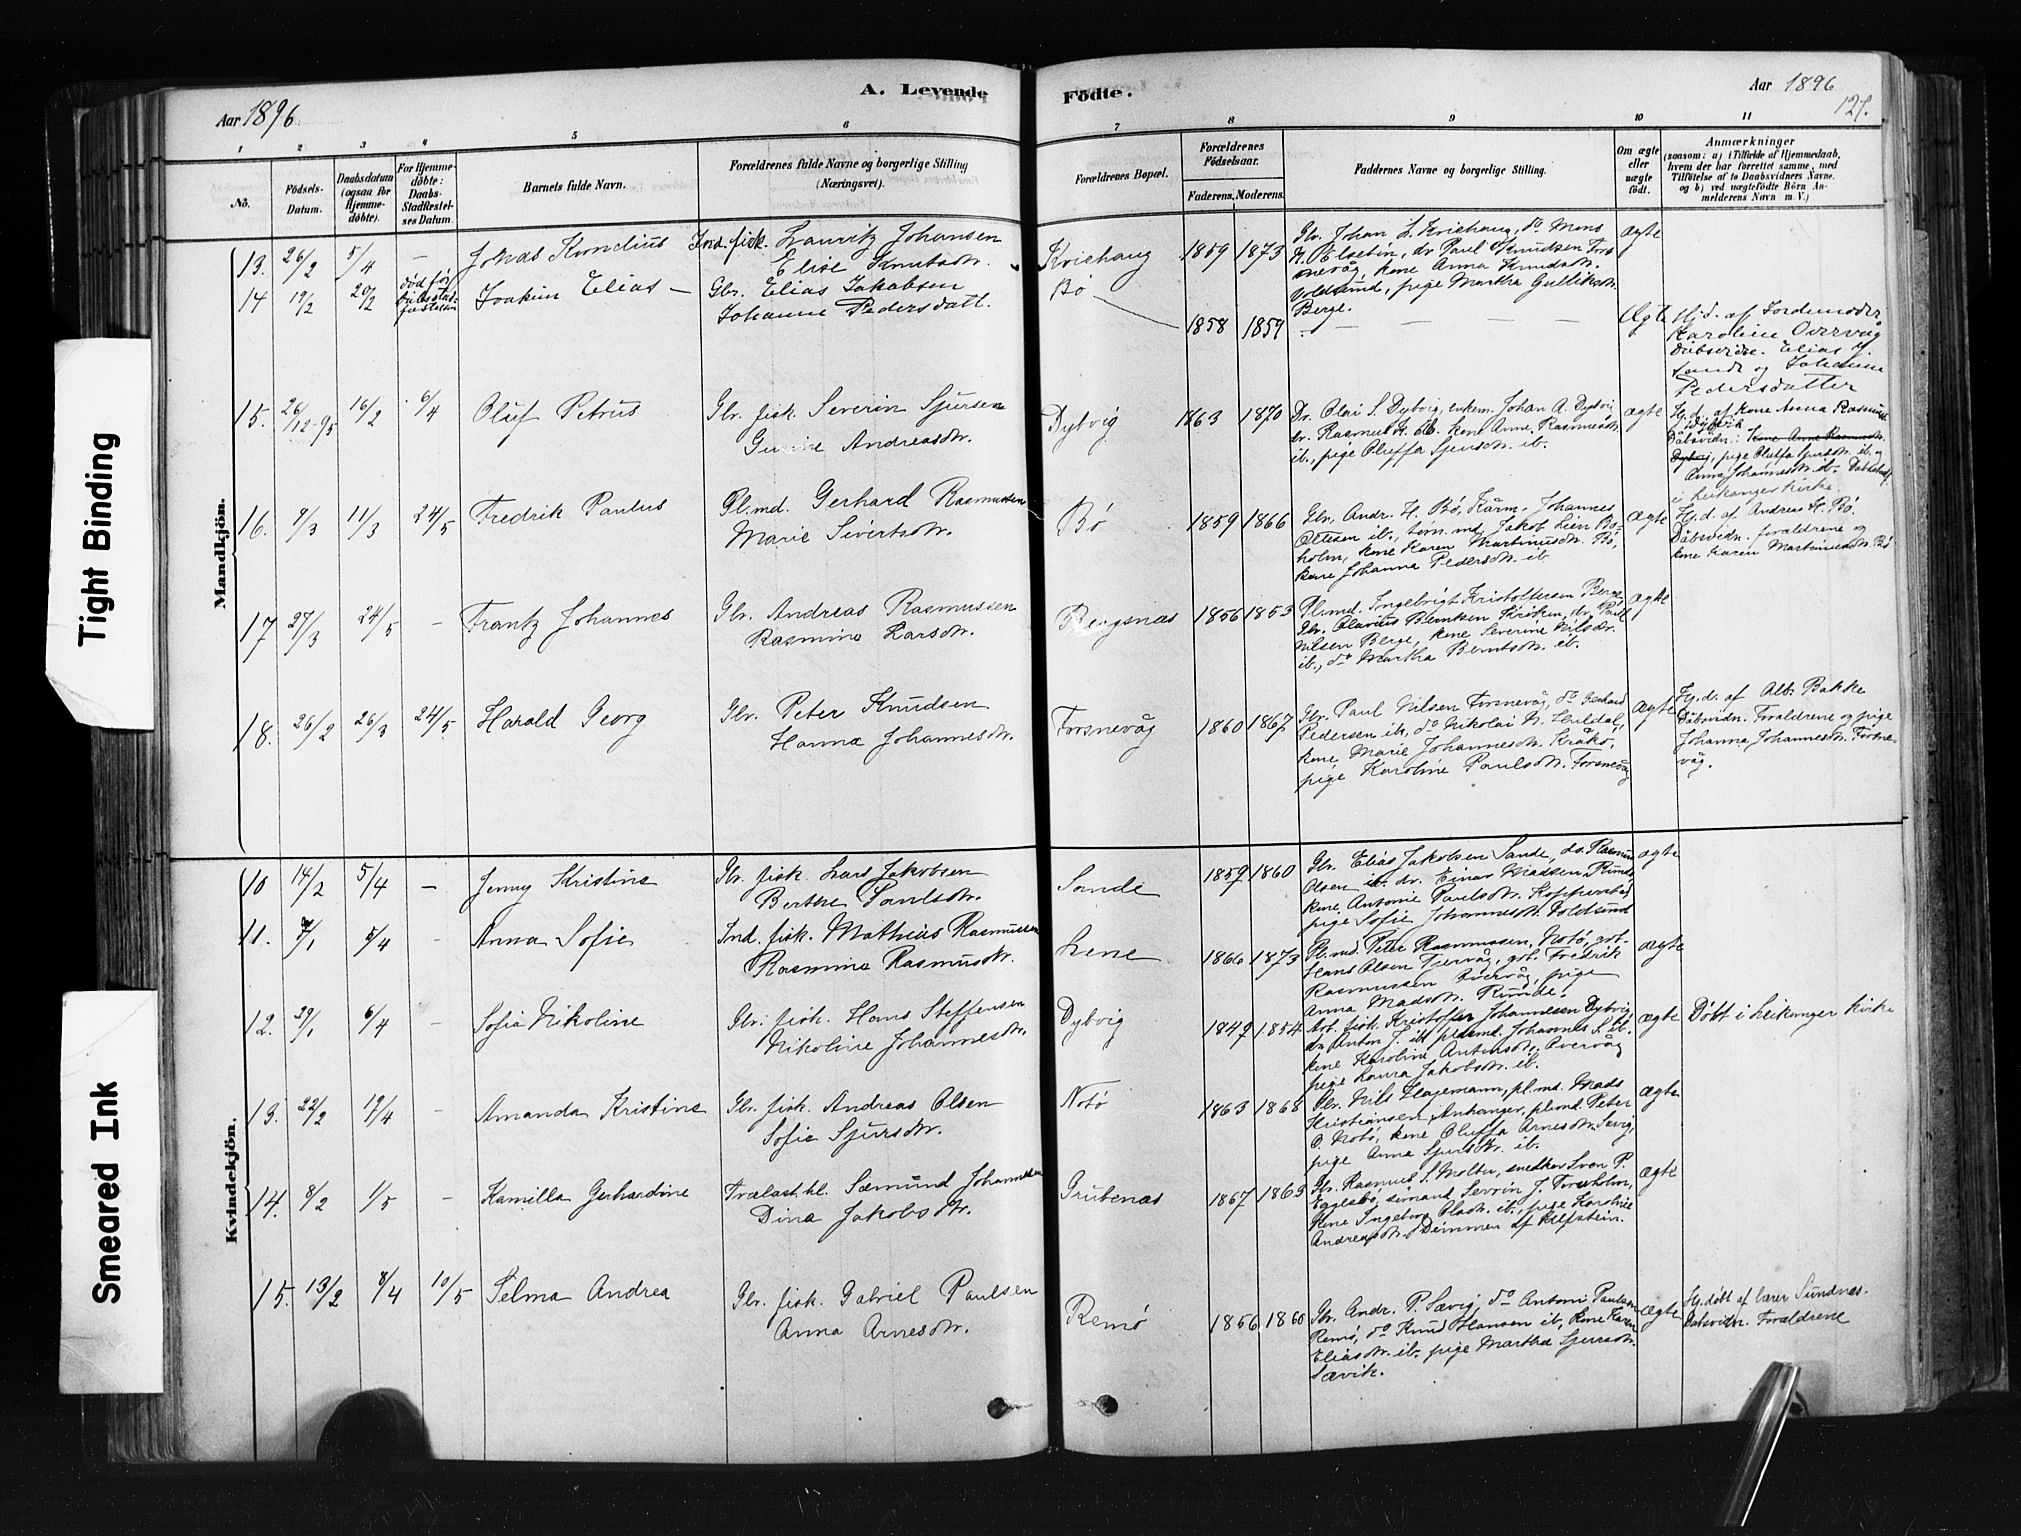 Tight Binding
Smeared Ink
Aar 1896
A. Levende
Födte.
Aar 1896
121.
1 2 3 4 5 6 7 8 9 10 11
No.
Födsels-Datum.
Daabsdatum (ogsaa for Hjemmedöbte).
For Hjemmedöbte: Daabs-Stadfæstelses Datum
Barnets fulde Navn.
Forældrenes fulde Navne og borgerlige Stilling (Næringsvei).
Forældrenes Bopæl.
Forældrenes Födselsaar.
Faderens. Moderens.
Faddernes Navne og borgerlige Stilling.
Om ægte eller uægte födt.
Anmærkninger
(saasom: a) i Tilfælde af Hjemmedaab, hvem der har forrettet samme, med Tilföielse af to Daabsvidners Navne, og b) ved uægtefödte Börn Anmelderens Navn m. V.)
Mandkjön.
13. 26/2 5/4 — Jonas Kornelius Ind. fisk. Lauritz Johansen
Elise Knutsdtr.
1859 1873 Gbr. Johan L.
ægte
14 19/2 20/2 død før Joakim Elias — Gbr. Elias Jakobsen
Johanne Pedersdatt.
Bø 1858 1859 — — — — Ægte Hj.d. af Jordemoder
Karoline Overvåg
Elias J.
Sande og Johanne
Pedersdatter
15. 26/12-95 16/2 6/4 Oluf Petrus Gbr. fisk. Severin Sjursen
Andreasdtr.
Dybvig 1863 1870 Dr. Olai S. Dybvig, enkem. Johan A. Dybvig
dr. Rasmus K. ib. kone Anne Rasmusdtr.
ib., pige Oluffa Sjursdtr. ib.
ægte Hj.d. af kone Anna Rasmusd.
Dybvik
Dåbsvidn: Kone Anne Rasmusdtr.
Dybvig, pige Olufa Sjursdtr. ib. og
Anna Johannesdtr. ib.
i Leikanger kirke.
16. 9/3 11/3 24/5 Fredrik Paulus Pl.md. Gerhard Rasmussen
Marie Sivertsdtr.
Bø 1859 1866 Gbr. Andr. H. Bø, Johannes
Ottesen ib., Jakob
holm, kone Karen Martinusdtr. Bø,
kone Johanna Pedersdtr. ib.
ægte Hj.d. af Andreas H. Bø.
Dåbsvidn. foraldrene og
kone Karen Martinusdtr. Bø
17 27/3 24/5 — Frantz Johannes Gbr. Andreas Rasmussen
Rasmine Larsdtr.
Bergsnæs 1856 1853 Pl.md. Ingebrigt Kristoffersen Berge
Nilsen Berge, kone Severine Nilsdtr.
ib., do Martha Berntsdtr. ib.
ægte
18. 26/2 26/3 24/5 Harald Georg Gbr. Peter Knudsen
Hanna Johannesdtr.
Forsnevåg 1860 1867 Gbr. Paul Nilsen Forsnevåg, do Gerhard
Pedersen ib, do Nikolai N.
kone Marie Johannesdtr. Kråkø,
pige Karoline Paulsdtr. Forsnevåg
ægte Hj.d. af Alb. Bakke
Dåbsvidn. Foraldrene og pige
Johanna Johannesdtr. Forsne-
våg.
Kvindekjön.
10 14/2 5/4 — Jenny Kristine Gbr. fisk. Lars Jakobsen
Berthe Paulsdtr.
Sande 1859 1860 Gbr. Elias Jakobsen Sande, do. Rasmus
Olsen ib. dr. Einar Madsen Runde
kone Antonie Paulsdtr. Koppenstad
pige Sofie Johannesdtr. Voldsund
ægte
11. 5/4 — Anna Sofie Ind. fisk. Mathias Rasmussen
Rasmine Rasmusdtr.
Lene 1866 1873 Pl.md. Peter Rasmussen, Notø, gbr.
Hans Olsen Tjervåg, gbr. Fredrik
Rasmussen Overvåg, pige
Anna Madsdtr. Runde.
ægte
12. 29/1 6/4 — Sofia Nikoline Gbr. fisk. Hans Steffensen
Nikoline Johannesdtr.
Dybvig 1849 1854 fisk. Kristoffer Johannesen Dybvig,
dr. Anton J. ib plsmd. Johannes S. ib.
kone Karoline Antonsdtr. Overvåg
pige Laura Jakobsdtr. ib.
ægte Døbt i Leikanger kirke
13. 22/2 19/4 — Amanda Kristine Gbr. fisk. Andreas Olsen
Sofie Sjursdtr.
Notø 1863 1868 Gbr. Nils Hagemann, pl.md. Mads
Kristiansen, plsmd. Peter
O. Notø, kone Oluffa Arnesdtr. Sævig,
pige Anna Sjursdtr. ib.
ægte
14. 8/2 1/5 — Kamilla Gerhardine Trælasthl. Sæmund Johannesen
Dina Jakobsdtr.
Grubenæs 1867 1863 Gbr. Rasmus S. Moltu, snedker Sven P.
Eggesbø, sømand Severin J. Torvholm,
Kone Ingeborg Olsdtr. ib., pige Karoline
Andreasdtr. Dimmen af Ulfstein.
ægte
15. 13/2 8/4 10/5 Selma Andrea Gbr. fisk. Gabriel Paulsen
Anna Arnesdtr.
Remø 1856 1860 Gbr. Andr. P. Sævig, do Anton Paulsen
Remø, do Knud Hansen ib, kone Karen
Eliasdtr. ib. pige Martha Sjursdtr.
Sævik.
ægte Hj. døbt af lærer Sundnes.
Dåbsvidn. Forældrene